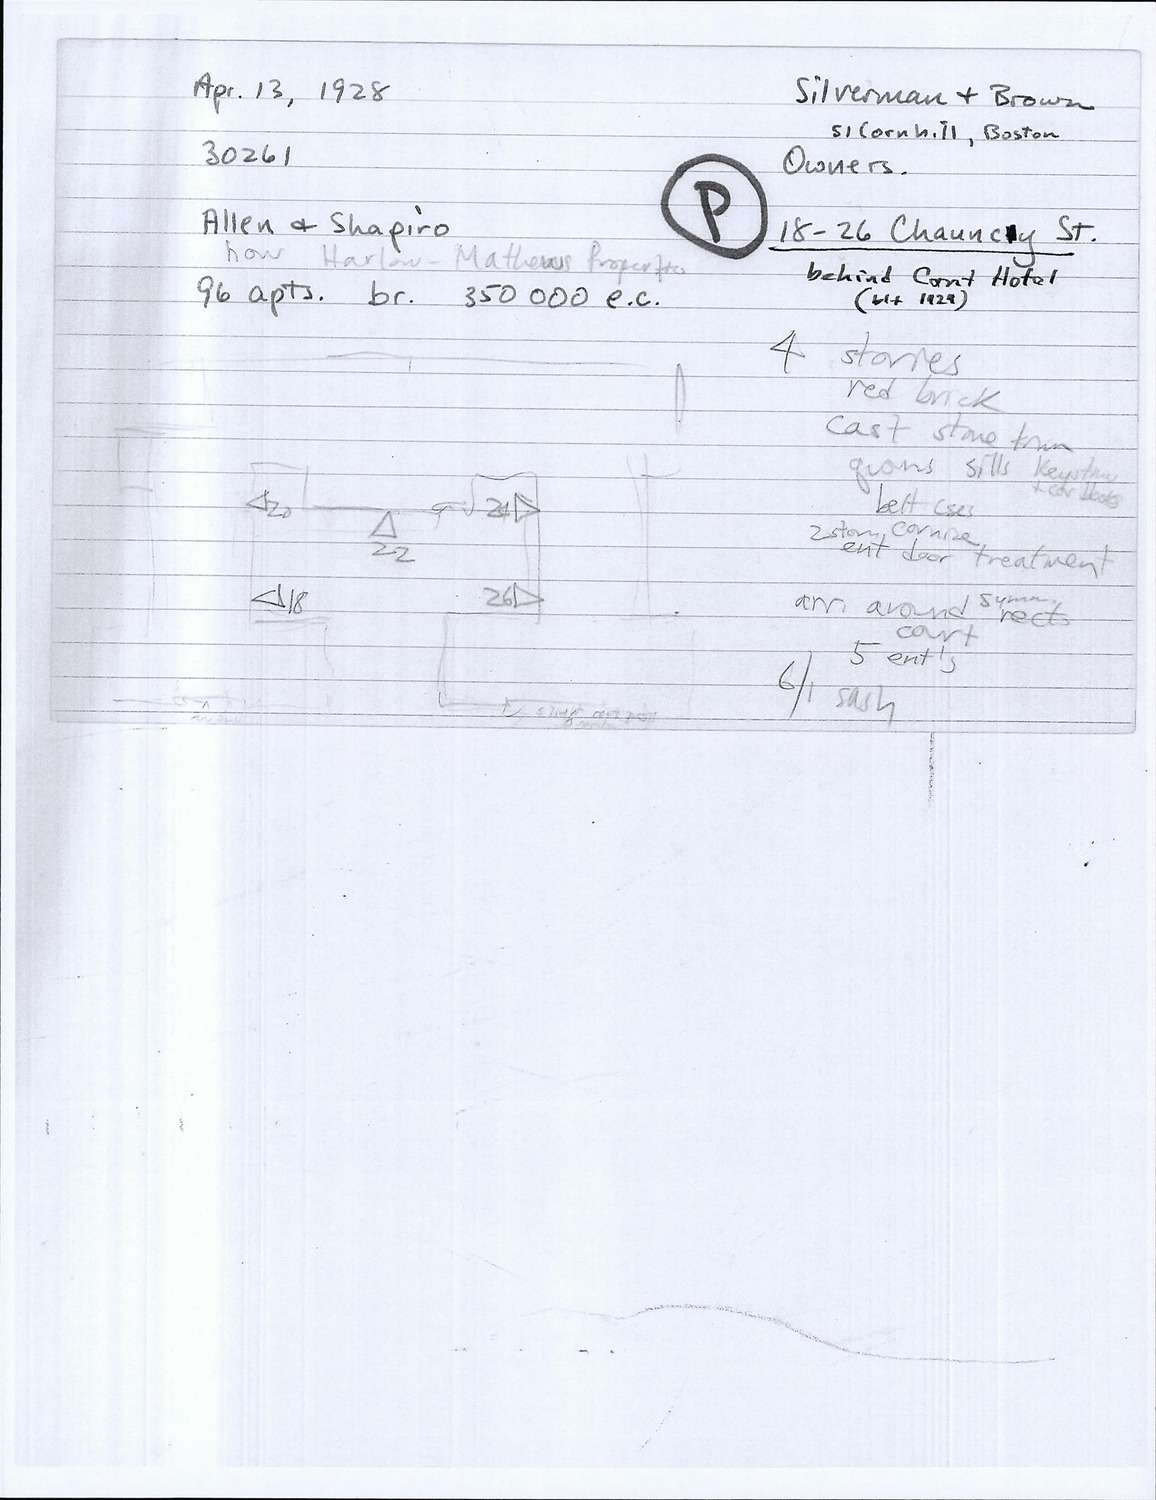 Apr. 13, 1928
30261
Allen & Shapiro
now Harlow-Mathews Properties
96 apts. br. 350 000 e.c.
Silverman + Brown
51 Cornhill, Boston
Owners.
P
18-26 Chauncy St.
behind Comt Hotel
(blt 1929)
4 stories
red brick
cast stone trim
quoins sills keystones
belt cses
2 story cornice
ent door treatment
arr. around symm. rect.
court
5 ent's
6/1 sash
20
24
22
18
26